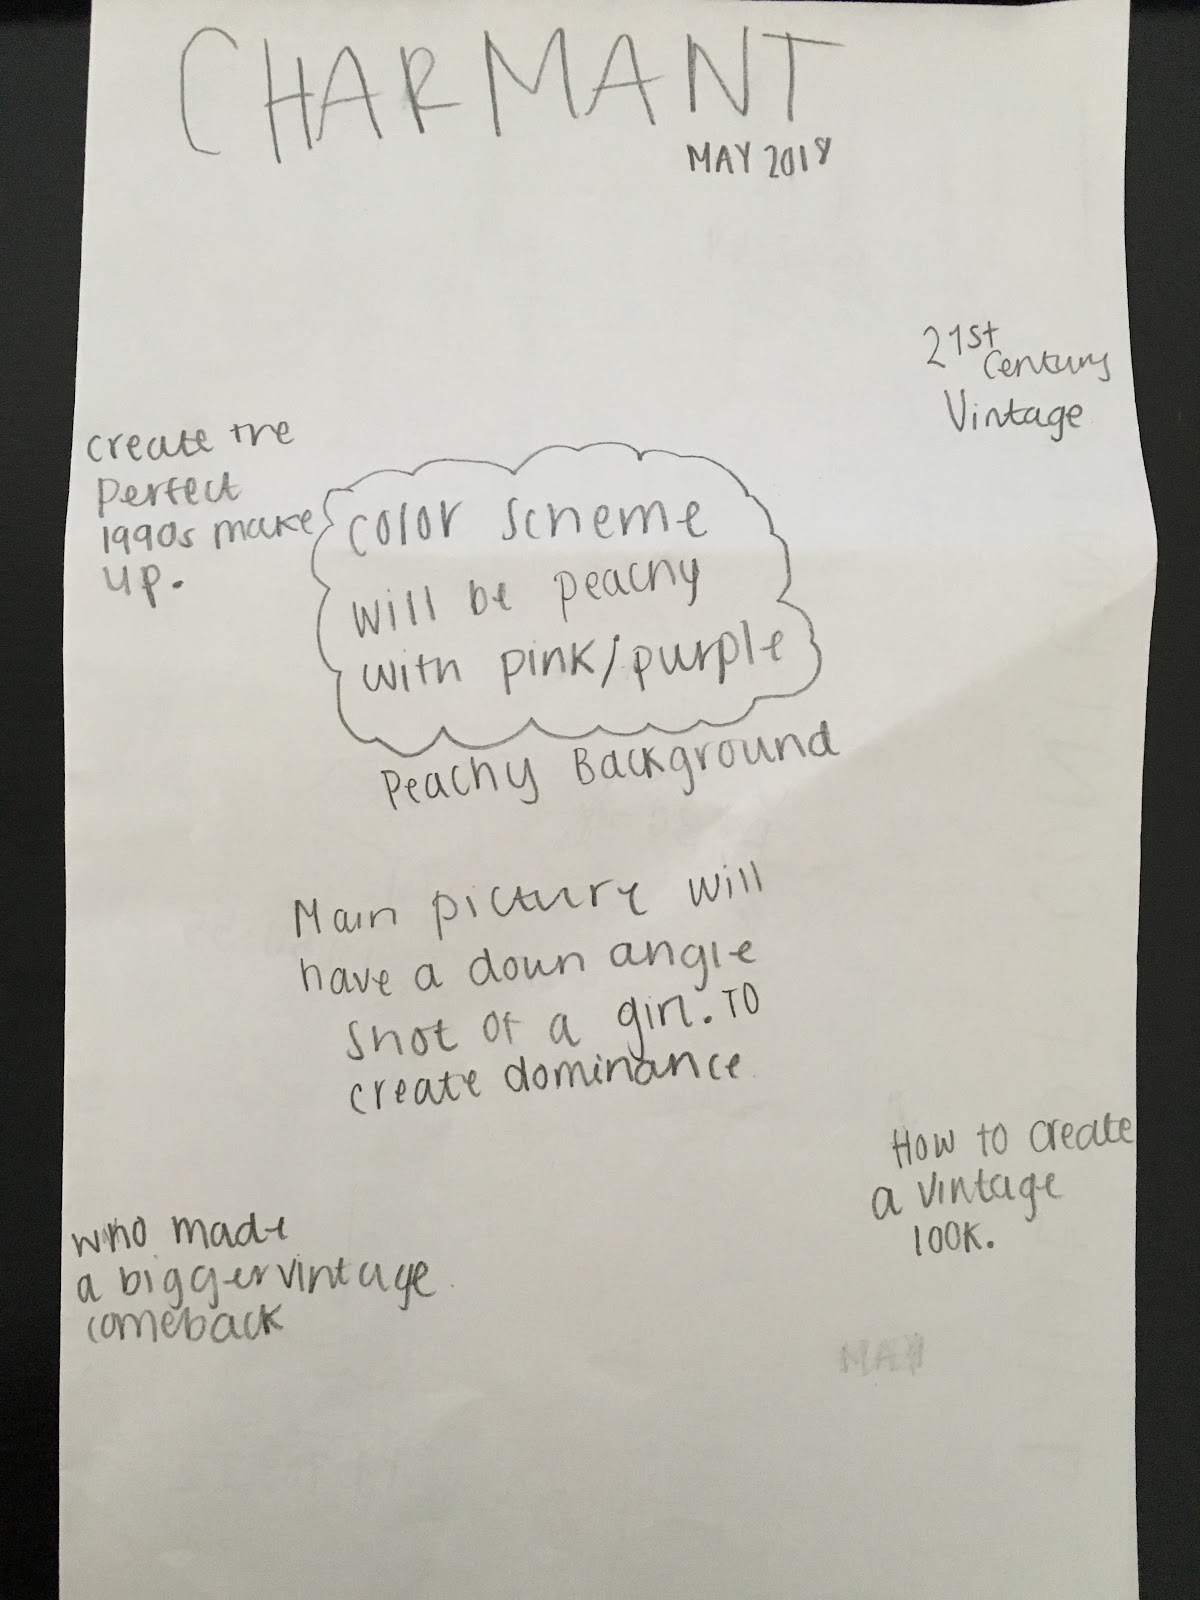 CHARMANT
MAY 2018
21st
Century
Vintage
create the
Perfect
1990s make
up.
color scheme
will be peachy
with pink/purple
Peachy Background
Main picture will
have a down angle
shot of a girl. TO
create dominance
How to create
a vintage
look.
who made
a bigger vintage
comeback